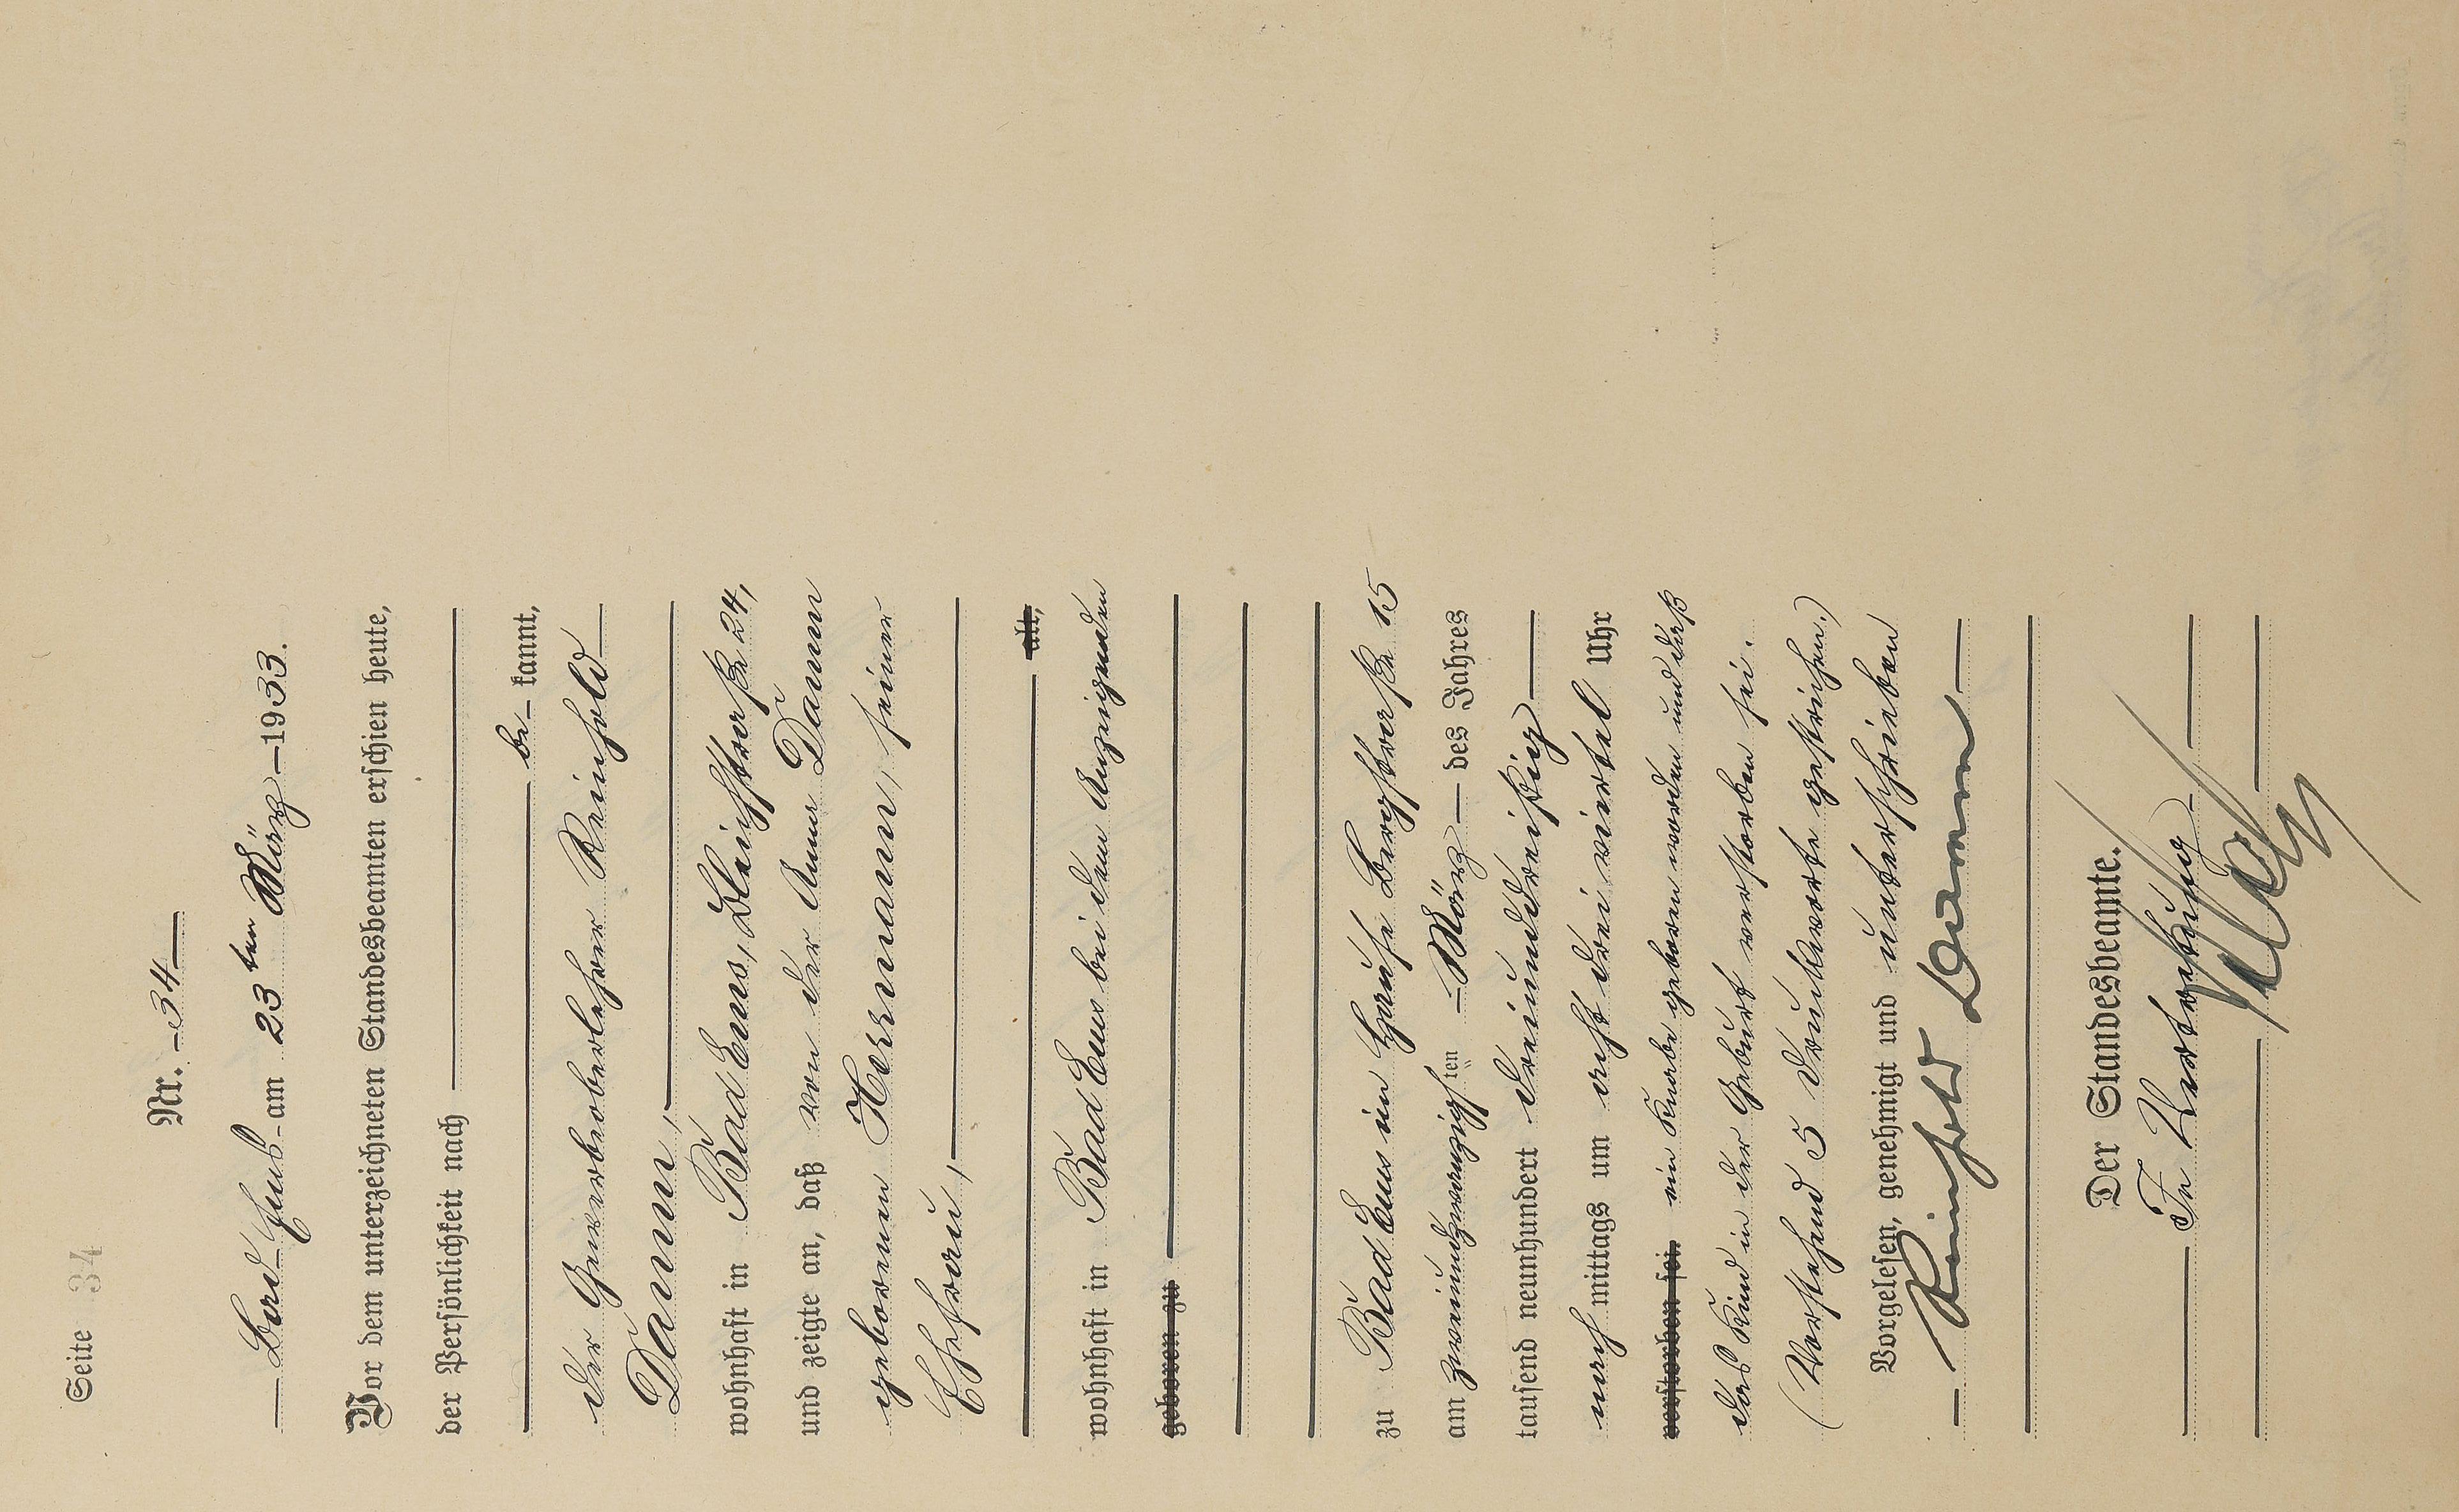 Seite 34
Nr. 34
Bad Ems am 23ten März 1933.
Vor dem unterzeichneten Standesbeamten erschien heute,
der Persönlichkeit nach
be kannt,
der Gewerbeoberlehrer Reinhold
Damm,
wohnhaft in Bad Ems, Bleichstraße 24,
und zeigte an, daß von der Anna Damm
geborenen Hermann, seiner
Ehefrau,
alt,
wohnhaft in Bad Ems bei dem Anzeigenden
geboren zu
zu Bad Ems im Hause Bergstraße 15
am zweiundzwanzigsten März des Jahres
tausend neunhundert dreiunddreißig
nachmittags um acht drei viertel Uhr
verstorben sei. ein Knabe geboren worden und daß
das Kind in der Geburt verstorben sei.
(Vorstehend 5 Druckworte gestrichen.)
Vorgelesen, genehmigt und unterschrieben
Reinhold Damm
Der Standesbeamte.
In Vertretung